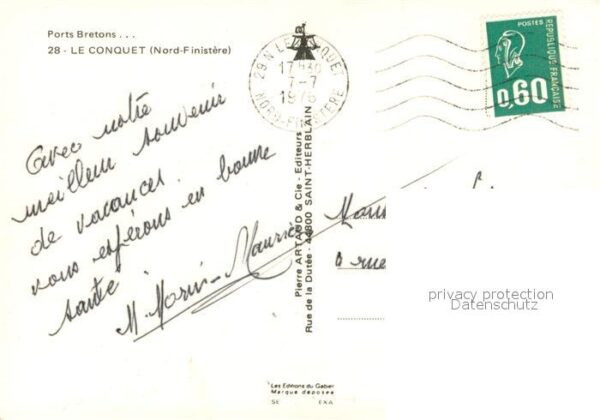 Ports Bretons . . .
28 - LE CONQUET (Nord-Finistère)
29 N LE CONQUET
17H30
7-7
1976
NORD-FINISTÈRE
POSTES
RÉPUBLIQUE FRANÇAISE
0,60
Avec notre
meilleur souvenir
de vacances.
vous espérons en bonne
santé
M. Morin-Maurice
Pierre ARTAUD & Cie - Editeurs
Rue de la Dutée - 44800 SAINT-HERBLAIN
rue
privacy protection
Datenschutz
Les Editions du Gabier
Marque déposée
SE EXA